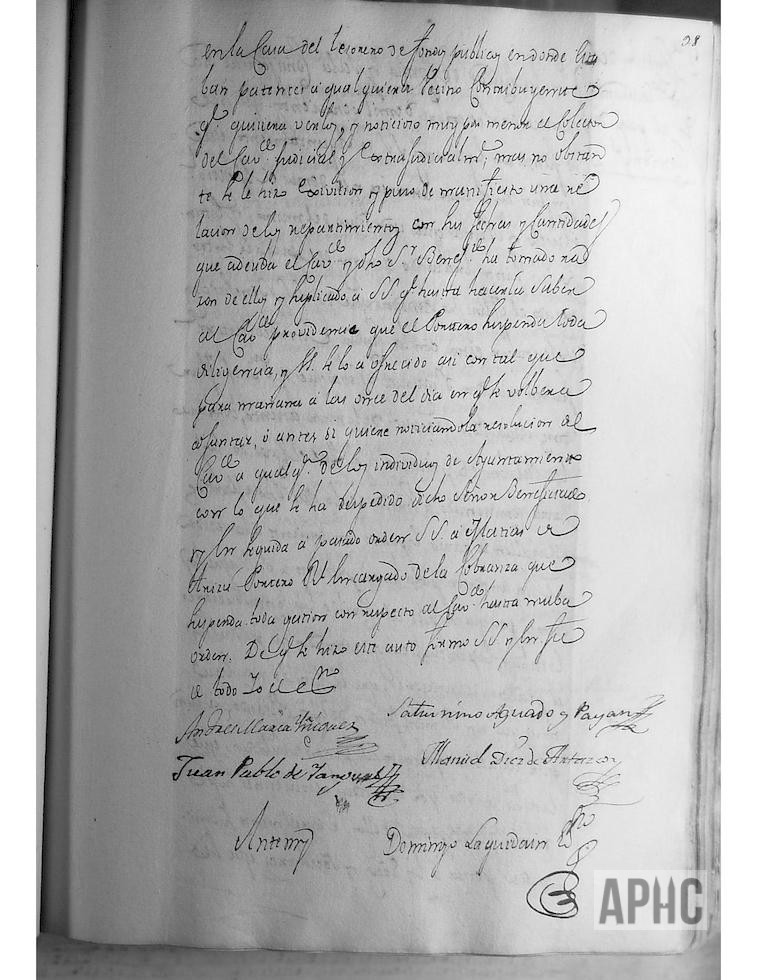 98
en la Casa del tesorero de fondos publicos en donde
ban patentes a qualquiera Vecino Contribuyente
qe. quisiera verlos, y noticioso muy por menor el Colector
del Cavdo. Judicial y Extrajudicialmte; mas no obstan
te se le hizo exivision y puso de manifiesto una re
lacion de los repartimientos con sus fechas y Cantidades
que adeuda el Cavdo. y dho Sr. Benefdo. ha tomado ra
zon de ellos y suplicado a SS qe. hasta hacerla saber
al Cavdo. providencie que el Portero suspenda toda
diligencia, y SS. se lo a ofrecido asi con tal que
para mañana a las once del dia en qe. se volbera
a juntar, o antes si quiere noticiando la resolucion del
Cavdo. a qualqa. de los individuos de Ayuntamiento
con lo que se ha despedido dicho Señor Beneficiado
y en seguida a pasado orden SS. a Matias de
Portero Rl. Encargado de la Cobranza que
suspenda toda gestion con respecto al Cavdo. hasta nueba
orden. De qe. se hizo este auto firmo SS y en fee
de todo Yo el Eno
Andres Maria Yñiguez
Saturnino Aguado y Payan
Juan Pablo de
Manuel Diez de
Antemi
Domingo Laguidain
APHC